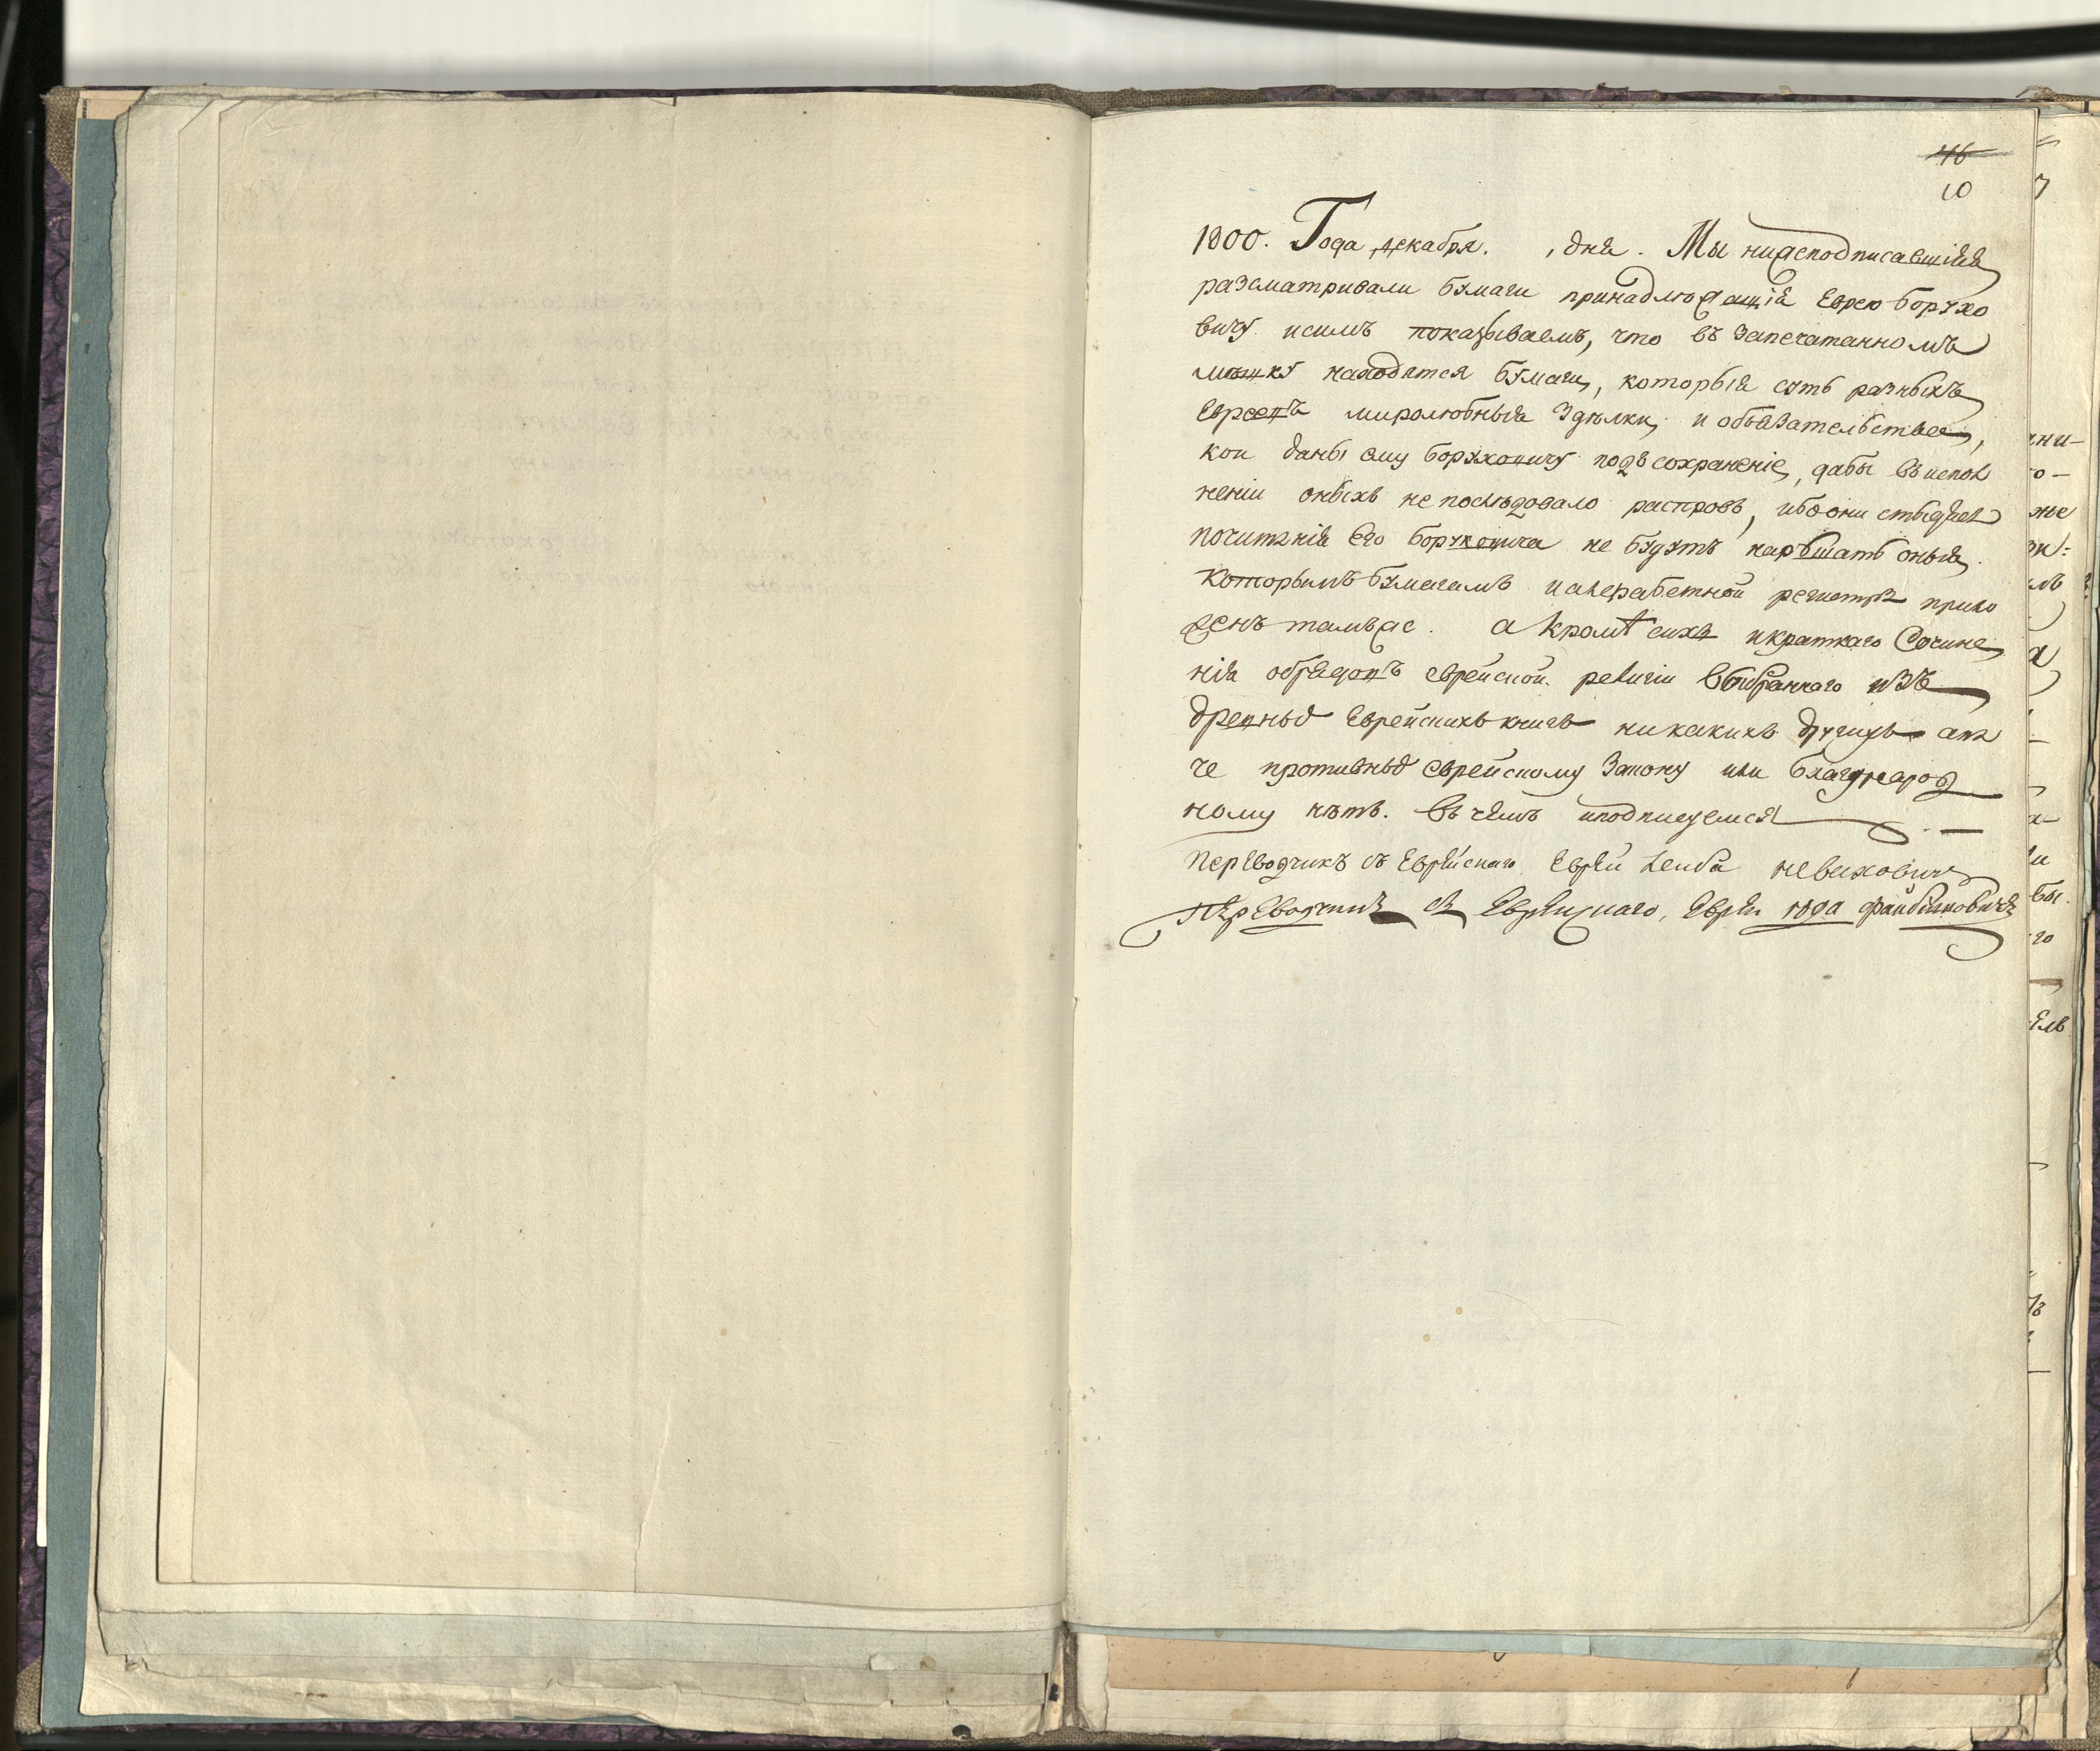 46
10
1800. Года декабря. , дня. Мы нижеподписавшіяя
разсматривали бумаги принадлежащія Еврею Борухо
вичу и симъ показываемъ, что въ запечатанномъ
мѣшку находятся бумаги, которыя суть разныхъ
Евреевъ миролюбныя здѣлки, и обязательства,
кои даны ему Боруховичу подъ сохраненіе, дабы въ испол
неніи оныхъ не послѣдовало распровъ, ибо они
почитанія Его Боруховича не будутъ нарушать оныя.
которымъ бумагамъ и алфабетной регистръ прило
женъ тамъ же. а кромѣ сихъ и краткаго Сочине
нія обрядовъ еврейской религіи выбраннаго изъ
древныхъ Еврейскихъ книгъ никакихъ другихъ а па
че противныхъ еврейскому Закону или благу народ
ному нѣтъ. въ чемъ и подписуемся
переводчикъ съ Еврейскаго Еврей Лейба Невахович
переводчикъ съ Еврейскаго, Еврей Юда Файбишовичъ
ни-
о-
же
мъ
бы.
го